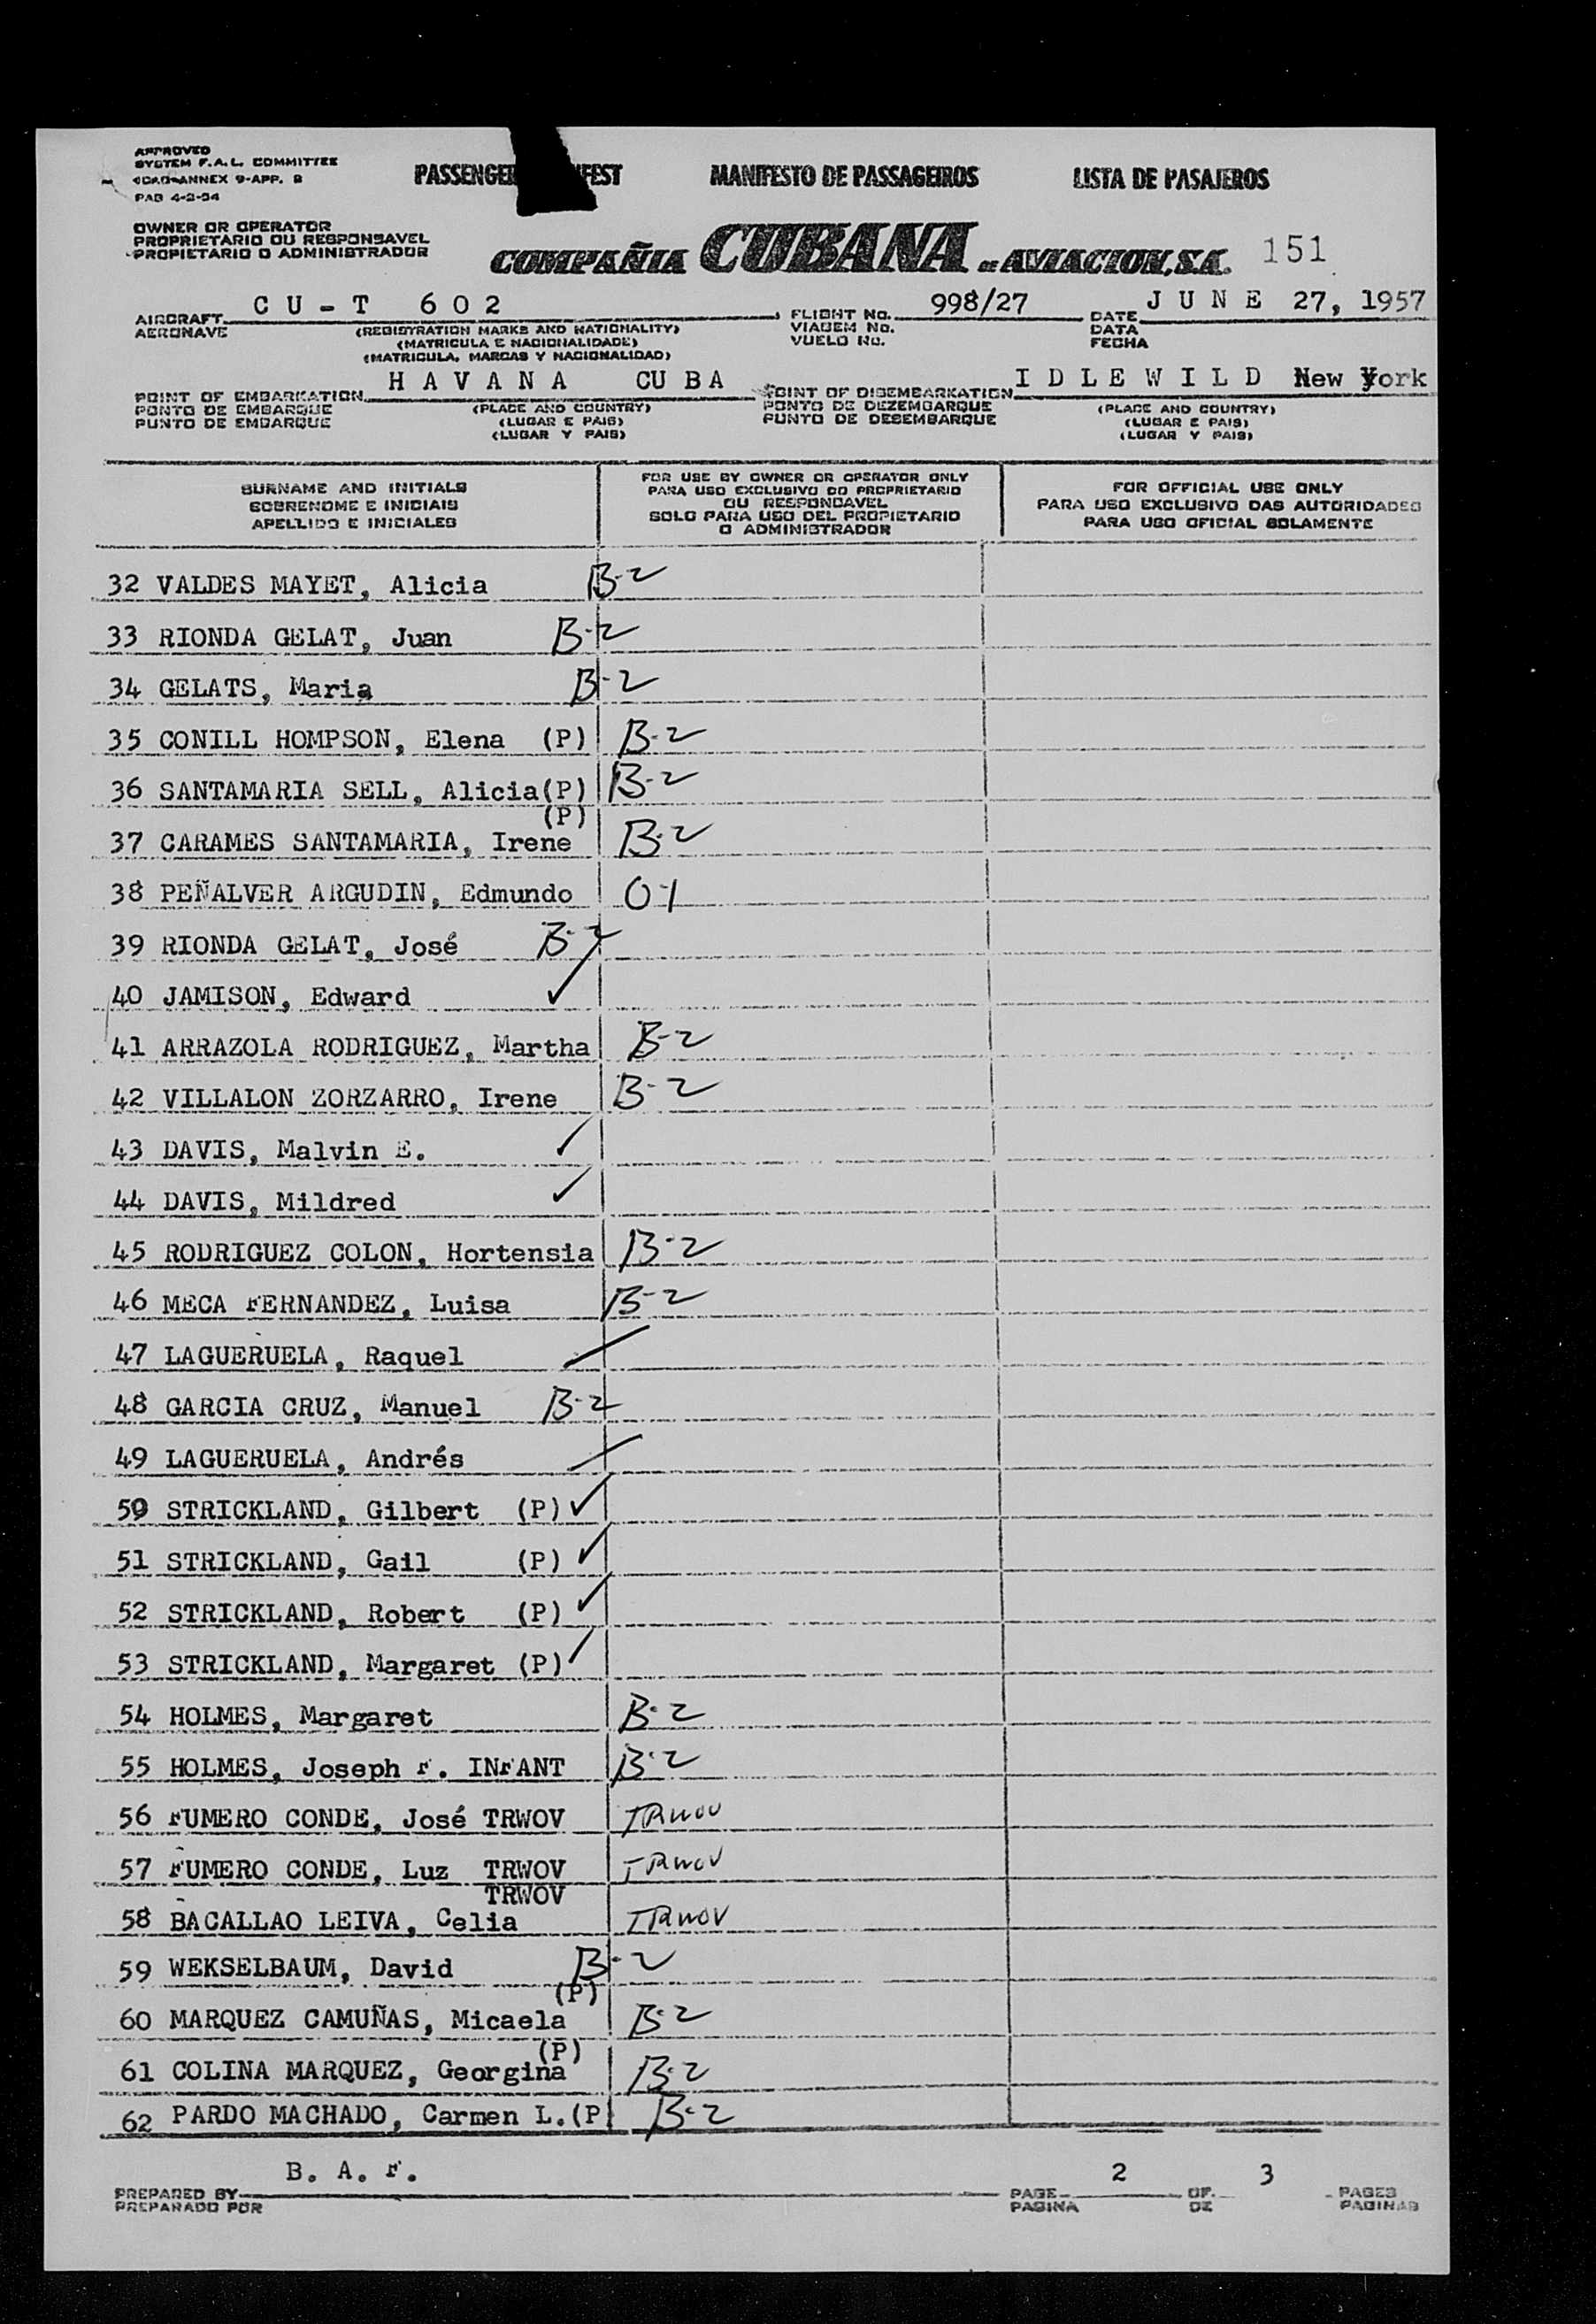 APPROVED
SYSTEM F.A.L. COMMITTEE
ICAO-ANNEX 9-APP. B
PAB 4-2-54
PASSENGER FEST MANIFESTO DE PASSAGEIROS LISTA DE PASAJEROS
OWNER OR OPERATOR
PROPRIETARIO OU RESPONSAVEL
PROPIETARIO O ADMINISTRADOR
COMPAÑIA CUBANA DE AVIACION, S.A. 151
AIRCRAFT CU-T 602 FLIGHT No. 998/27 DATE JUNE 27, 1957
AERONAVE (REGISTRATION MARKS AND NATIONALITY) VIAGEM No. DATA
(MATRICULA E NACIONALIDADE) VUELO No. FECHA
(MATRICULA, MARCAS Y NACIONALIDAD)
POINT OF EMBARKATION HAVANA CUBA POINT OF DISEMBARKATION IDLEWILD New York
PONTO DE EMBARQUE (PLACE AND COUNTRY) PONTO DE DEZEMBARQUE (PLACE AND COUNTRY)
PUNTO DE EMBARQUE (LUGAR E PAIS) PUNTO DE DESEMBARQUE (LUGAR E PAIS)
(LUGAR Y PAIS) (LUGAR Y PAIS)
SURNAME AND INITIALS
SOBRENOME E INICIAIS
APELLIDO E INICIALES
FOR USE BY OWNER OR OPERATOR ONLY
PARA USO EXCLUSIVO DO PROPRIETARIO
OU RESPONDAVEL
SOLO PARA USO DEL PROPIETARIO
O ADMINISTRADOR
FOR OFFICIAL USE ONLY
PARA USO EXCLUSIVO DAS AUTORIDADES
PARA USO OFICIAL SOLAMENTE
32 VALDES MAYET, Alicia B-2
33 RIONDA GELAT, Juan B-2
34 GELATS, Maria B-2
35 CONILL HOMPSON, Elena (P) B-2
36 SANTAMARIA SELL, Alicia(P) B-2
(P)
37 CARAMES SANTAMARIA, Irene B-2
38 PEÑALVER ARGUDIN, Edmundo O-1
39 RIONDA GELAT, José B-2
40 JAMISON, Edward ✓
41 ARRAZOLA RODRIGUEZ, Martha B-2
42 VILLALON ZORZARRO, Irene B-2
43 DAVIS, Malvin E. ✓
44 DAVIS, Mildred ✓
45 RODRIGUEZ COLON, Hortensia B-2
46 MECA FERNANDEZ, Luisa B-2
47 LAGUERUELA, Raquel
48 GARCIA CRUZ, Manuel B-2
49 LAGUERUELA, Andrés
50 STRICKLAND, Gilbert (P) ✓
51 STRICKLAND, Gail (P) ✓
52 STRICKLAND, Robert (P) ✓
53 STRICKLAND, Margaret (P) ✓
54 HOLMES, Margaret B-2
55 HOLMES, Joseph F. INFANT B-2
56 FUMERO CONDE, José TRWOV TRWOV
57 FUMERO CONDE, Luz TRWOV TRWOV
TRWOV
58 BACALLAO LEIVA, Celia TRWOV
59 WEKSELBAUM, David B-2
(P)
60 MARQUEZ CAMUÑAS, Micaela B-2
(P)
61 COLINA MARQUEZ, Georgina B-2
62 PARDO MACHADO, Carmen L.(P B-2
PREPARED BY B. A. F. PAGE 2 OF 3 PAGES
PREPARADO POR PAGINA DE PAGINAS